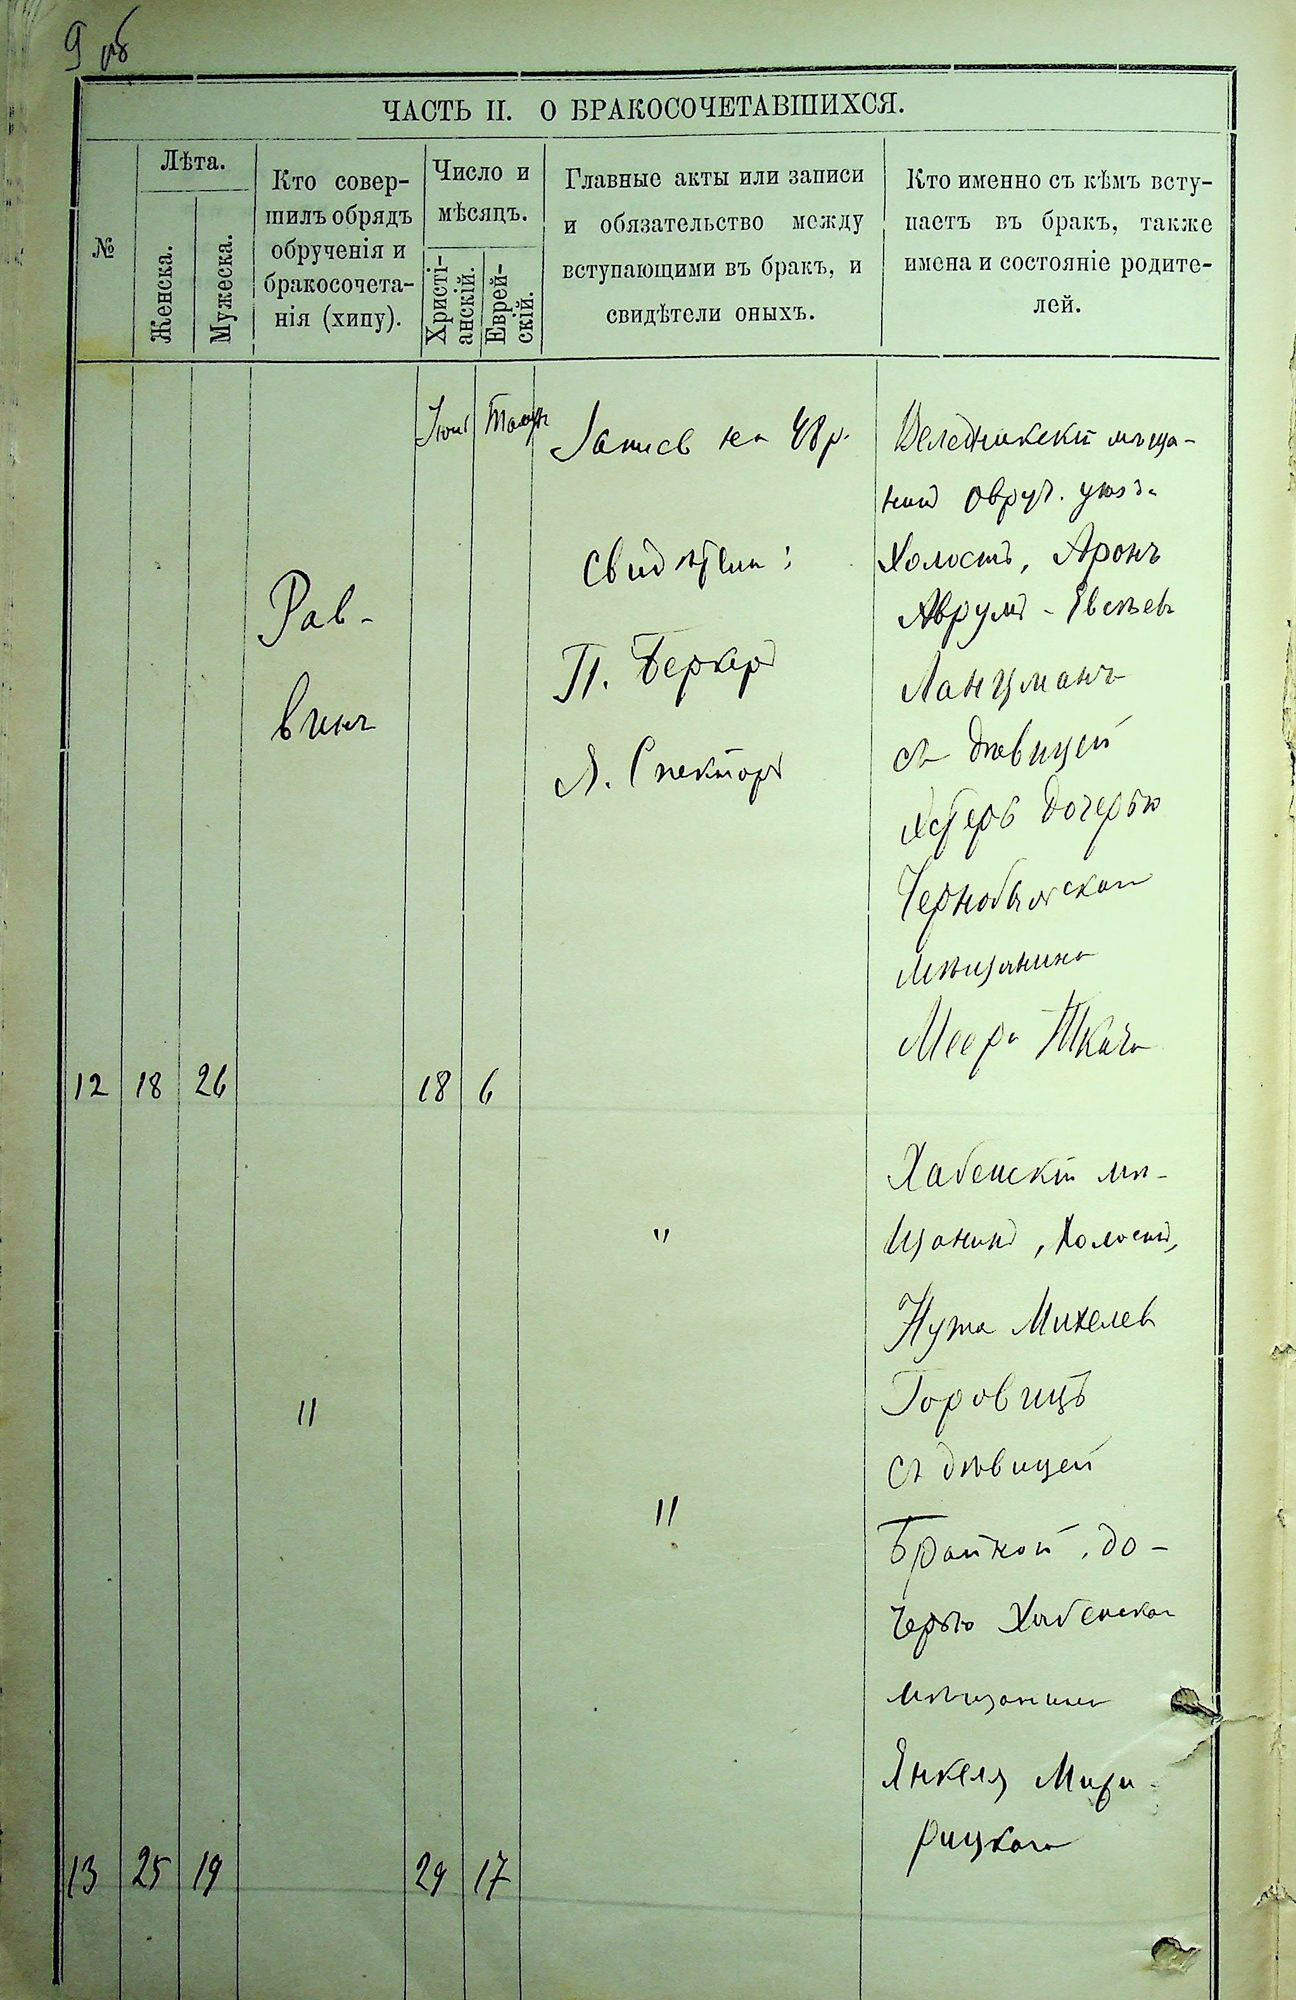 9 об
ЧАСТЬ II. О БРАКОСОЧЕТАВШИХСЯ.
№
Лѣта.
Женска.
Мужеска.
Кто совер-
шилъ обрядъ
обрученія и
бракосочета-
нія (хипу).
Число и
мѣсяцъ.
Христі-
анскій.
Еврей-
скій.
Главные акты или записи
и обязательство между
вступающими въ бракъ, и
свидѣтели оныхъ.
Кто именно съ кѣмъ всту-
паетъ въ бракъ, также
имена и состояніе родите-
лей.
12
18
26
Рав-
винъ
Іюнь
18
Тамузъ
6
Запись на 48 р.
свидѣтели:
П. Беркер
Я. Спекторъ
Веледникскій мѣща-
нинъ Овруч. уѣзда
Холостъ, Аронъ
Аврумъ-Евсѣевъ
Ланцманъ
съ дѣвицей
Эстеръ дочерью
Чернобыльскаго
мѣщанина
Меера Ткача
13
25
19
"
29
17
"
"
Хабенскій мѣ-
щанинъ, холостъ,
Нута Михелев
Горовицъ
съ дѣвицей
Брайной, до-
черью Хабенскаго
мѣщанина
Янкеля